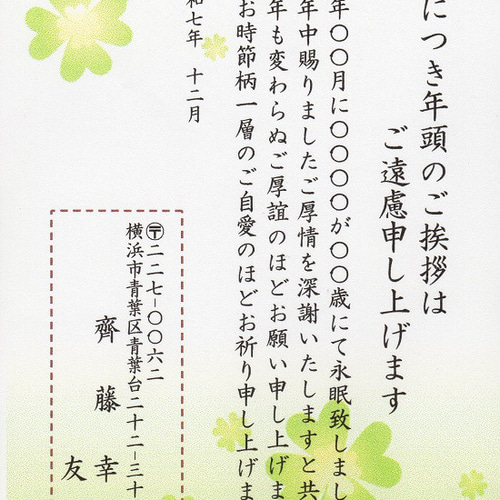 につき年頭のご挨拶は
ご遠慮申し上げます
年〇〇月に〇〇〇〇が〇〇歳にて永眠致しまし
年中賜りましたご厚情を深謝いたしますと共
年も変わらぬご厚誼のほどお願い申し上げま
お時節柄一層のご自愛のほどお祈り申し上げま
和七年 十二月
〒二二七-〇〇六二
横浜市青葉区青葉台二十二-三十
齊藤 幸
友